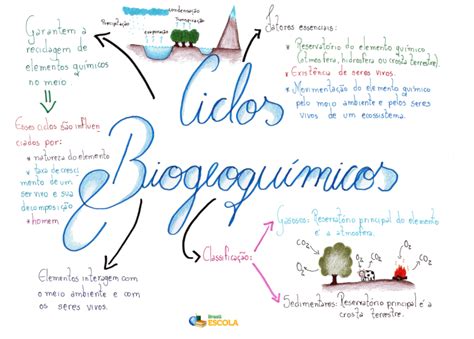 Garantem a
reciclagem de
elementos químicos
no meio.
Esses ciclos são influen
ciados por:
* natureza do elemento
* taxa de cresci
mento de um
ser vivo e sua
decomposição
* homem
condensação
Precipitação
Transpiração
evaporação
Fatores essenciais:
* Reservatório do elemento químico
(atmosfera, hidrosfera ou crosta terrestre).
* Existência de seres vivos.
* Movimentação do elemento químico
pelo meio ambiente e pelos seres
vivos de um ecossistema.
Ciclos
Biogeoquímicos
Elementos interagem com
o meio ambiente e com
os seres vivos.
Classificação:
Gasosos: Reservatório principal do elemento
é a atmosfera.
CO2
CO2
CO2
O2
O2
O2
Sedimentares: Reservatório principal é a
crosta terrestre.
Brasil
ESCOLA